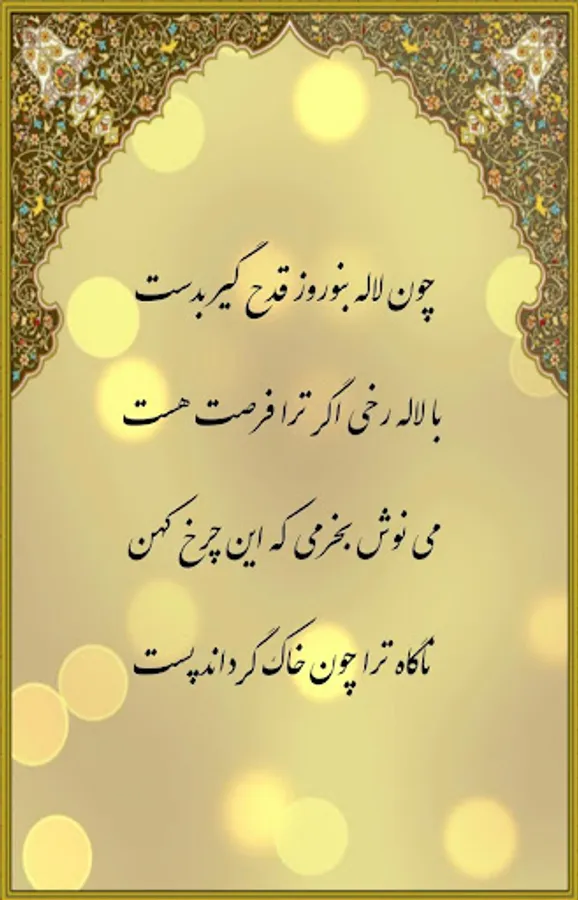 چون لاله بنوروز قدح گیر بدست
با لاله رخی اگر ترا فرصت هست
می نوش بخرمی که این چرخ کهن
ناگاه ترا چون خاک گرداند پست